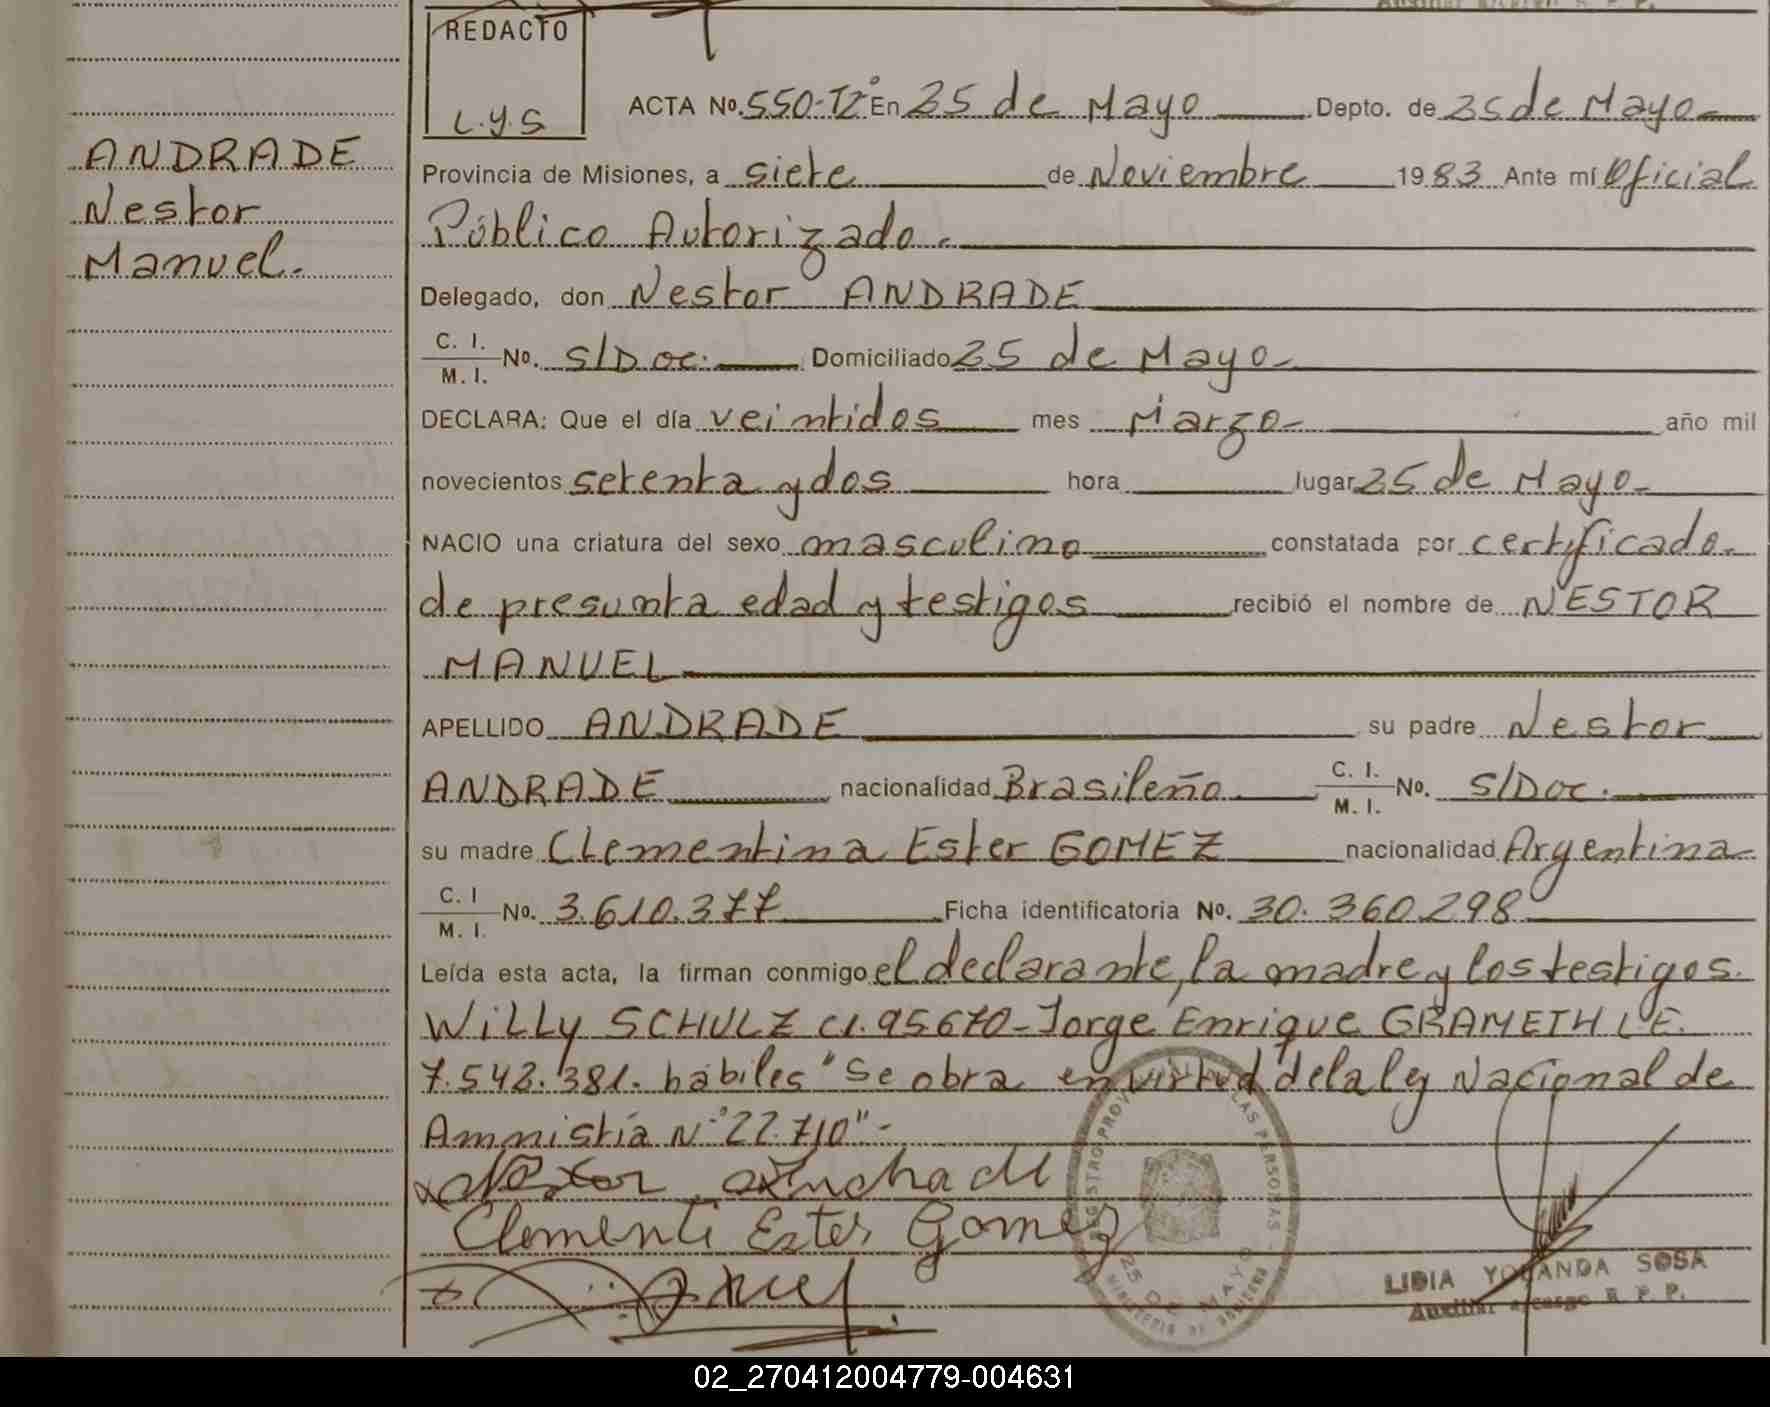 REDACTO
L.Y.S
ANDRADE
Nestor
Manuel.
ACTA No. 550-Tº En 25 de Mayo Depto. de 25 de Mayo
Provincia de Misiones, a siete de Noviembre 1983 Ante mí Oficial
Público Autorizado.
Delegado, don Nestor ANDRADE
C. I. / M. I. No. S/Doc. Domiciliado 25 de Mayo
DECLARA: Que el día veintidos mes Marzo año mil
novecientos setenta y dos hora lugar 25 de Mayo
NACIO una criatura del sexo masculino constatada por certificado
de presunta edad y testigos recibió el nombre de NESTOR
MANUEL
APELLIDO ANDRADE su padre Nestor
ANDRADE nacionalidad Brasileño C. I. / M. I. No. S/Doc.
su madre Clementina Ester GOMEZ nacionalidad Argentina
C. I / M. I. No. 3.610.377 Ficha identificatoria No. 30.360.298
Leída esta acta, la firman conmigo el declarante, la madre y los testigos.
Willy SCHULZ CI. 95670-Jorge Enrique GRAMETH L.E.
7.542.381. habiles "Se obra en virtud de la ley Nacional de
Amnistía Nº 22.710"-
Clementi Ester Gomez
REGISTRO PROVINCIAL DE LAS PERSONAS
25 DE MAYO
MINISTERIO DE GOBIERNO
LIDIA YOLANDA SOSA
Auxiliar a/cargo R. P. P.
02_270412004779-004631